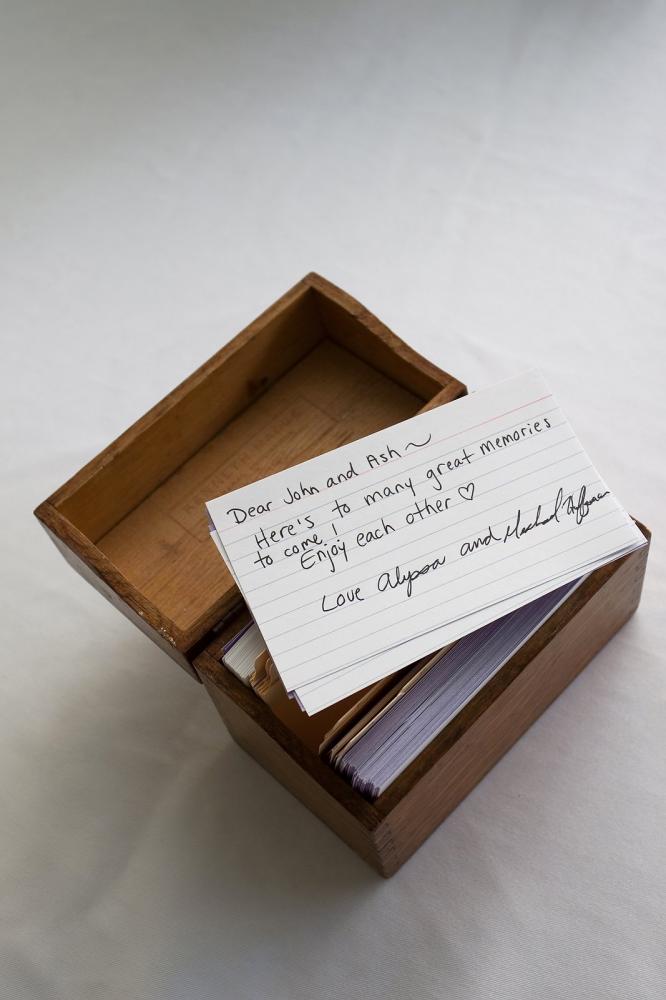 Dear John and Ash ~
Here's to many great memories
to come!
Enjoy each other ♡
Love Alyssa and Michael